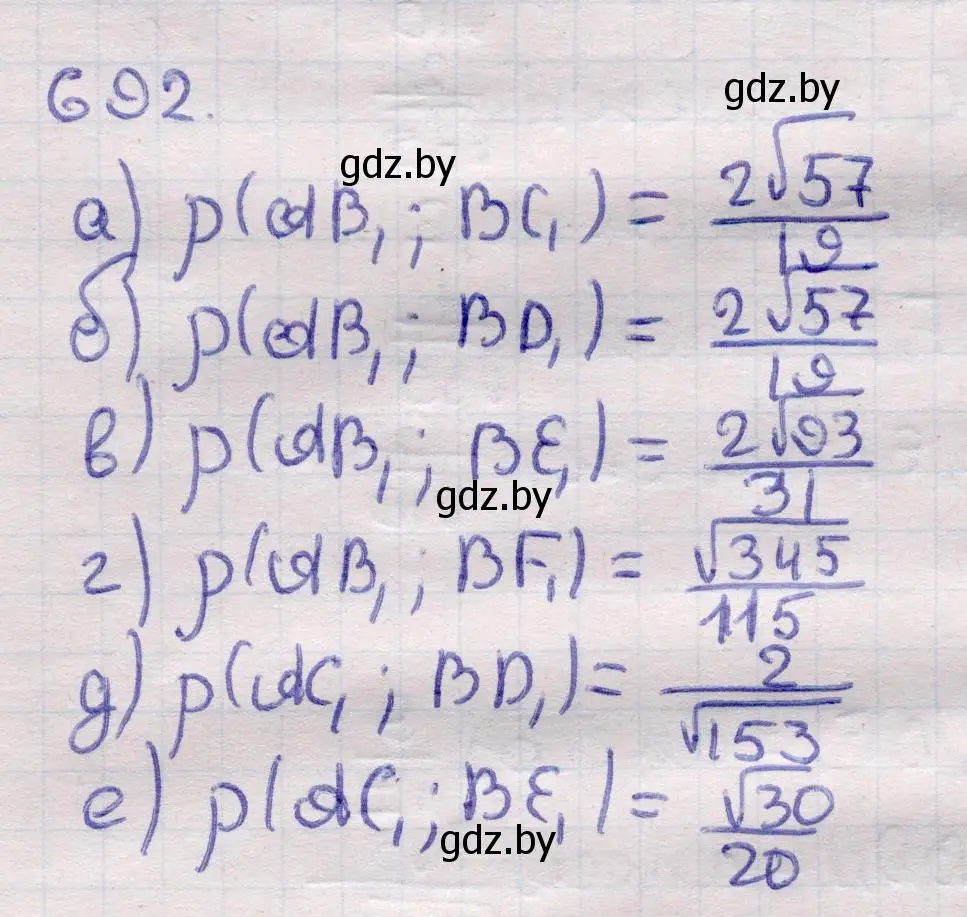 692.
gdz.by
gdz.by
а) ρ(AB₁; BC₁) = 2√57/19
б) ρ(AB₁; BD₁) = 2√57/19
в) ρ(AB₁; BE₁) = 2√93/31
gdz.by
г) ρ(AB₁; BF₁) = √345/115
д) ρ(AC₁; BD₁) = 2/√153
е) ρ(AC₁; BE₁) = √30/20
gdz.by